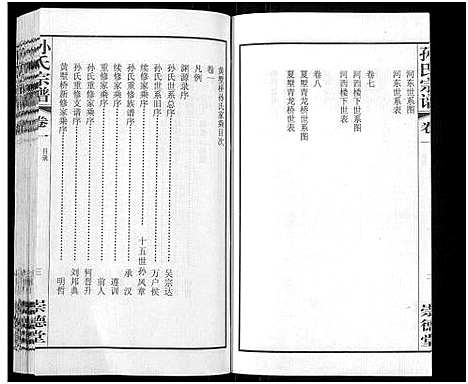 孙氏宗谱
卷一
河东世系图
河东世表
卷七
河西楼下世系图
河西楼下世表
卷八
夏墅青龙桥世系图
夏墅青龙桥世表
崇德堂
黄墅桥孙氏家乘目次
卷一
凡例
渊源录序
孙氏世系总序 吴宗达
孙氏世系旧序 万户侯
续修家乘序 十五世孙风章
孙氏重修族谱序 承汉
续修家乘序 遵训
重修家乘序 前人
孙氏重修家乘序 何晋升
孙氏重修支谱序 刘邦典
黄墅桥新修家乘序 明哲
孙氏宗谱
卷一
目录
三
崇德堂